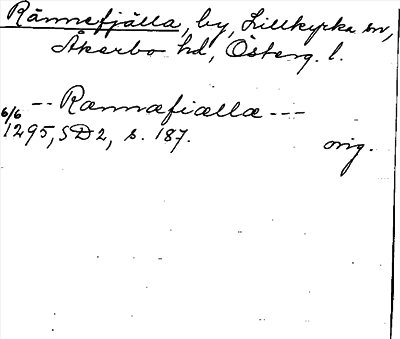 Rännefjälla, by, Lillkyrka sn,
Åkerbo hd, Österg. l.
-- Rannafialla ---
6/6 1295, SD2, s. 187. orig.